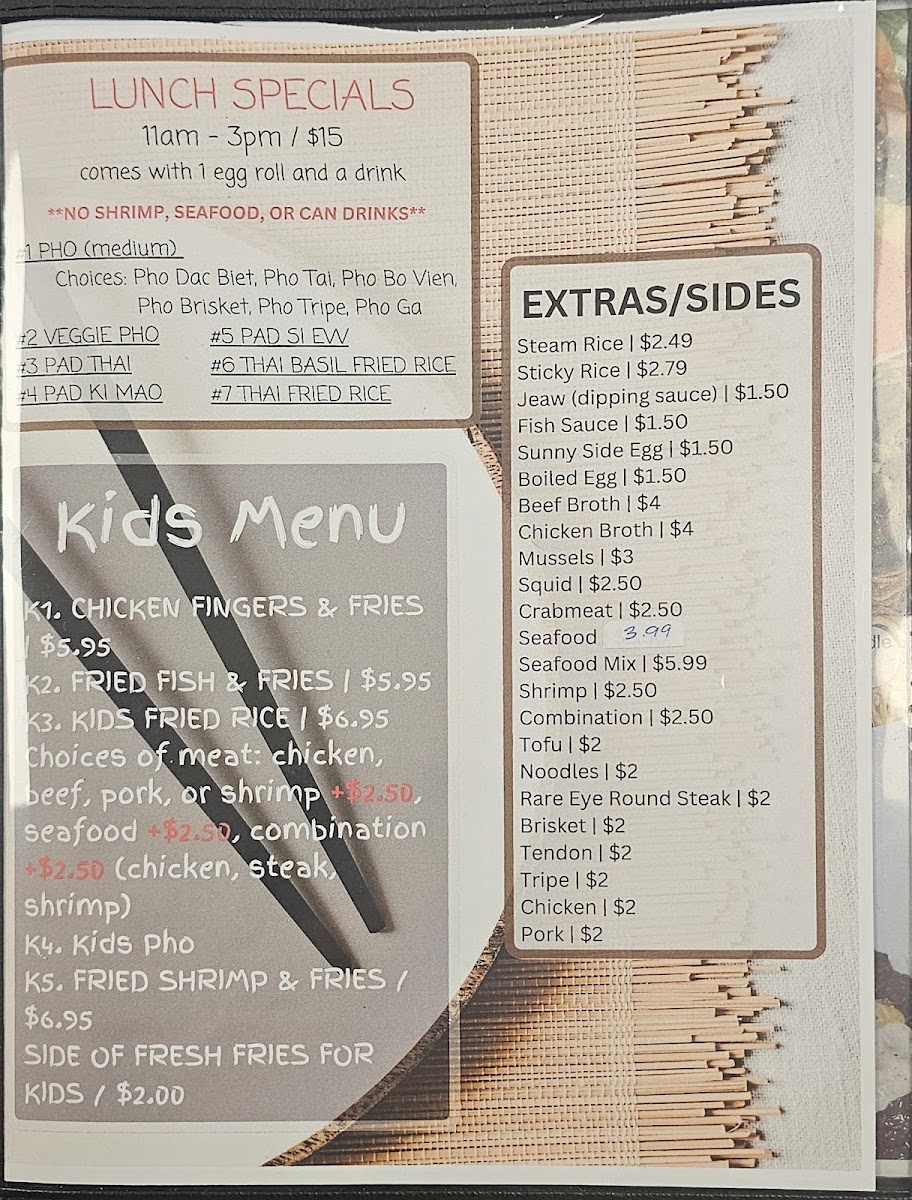 LUNCH SPECIALS
11am - 3pm / $15
comes with 1 egg roll and a drink
**NO SHRIMP, SEAFOOD, OR CAN DRINKS**
#1 PHO (medium)
Choices: Pho Dac Biet, Pho Tai, Pho Bo Vien,
Pho Brisket, Pho Tripe, Pho Ga
#2 VEGGIE PHO
#3 PAD THAI
#4 PAD KI MAO
#5 PAD SI EW
#6 THAI BASIL FRIED RICE
#7 THAI FRIED RICE
Kids Menu
K1. CHICKEN FINGERS & FRIES
/ $5.95
K2. FRIED FISH & FRIES / $5.95
K3. KIDS FRIED RICE / $6.95
Choices of meat: chicken,
beef, pork, or shrimp +$2.50,
seafood +$2.50, combination
+$2.50 (chicken, steak,
shrimp)
K4. Kids Pho
K5. FRIED SHRIMP & FRIES /
$6.95
SIDE OF FRESH FRIES FOR
KIDS / $2.00
EXTRAS/SIDES
Steam Rice | $2.49
Sticky Rice | $2.79
Jeaw (dipping sauce) | $1.50
Fish Sauce | $1.50
Sunny Side Egg | $1.50
Boiled Egg | $1.50
Beef Broth | $4
Chicken Broth | $4
Mussels | $3
Squid | $2.50
Crabmeat | $2.50
Seafood 3.99
Seafood Mix | $5.99
Shrimp | $2.50
Combination | $2.50
Tofu | $2
Noodles | $2
Rare Eye Round Steak | $2
Brisket | $2
Tendon | $2
Tripe | $2
Chicken | $2
Pork | $2